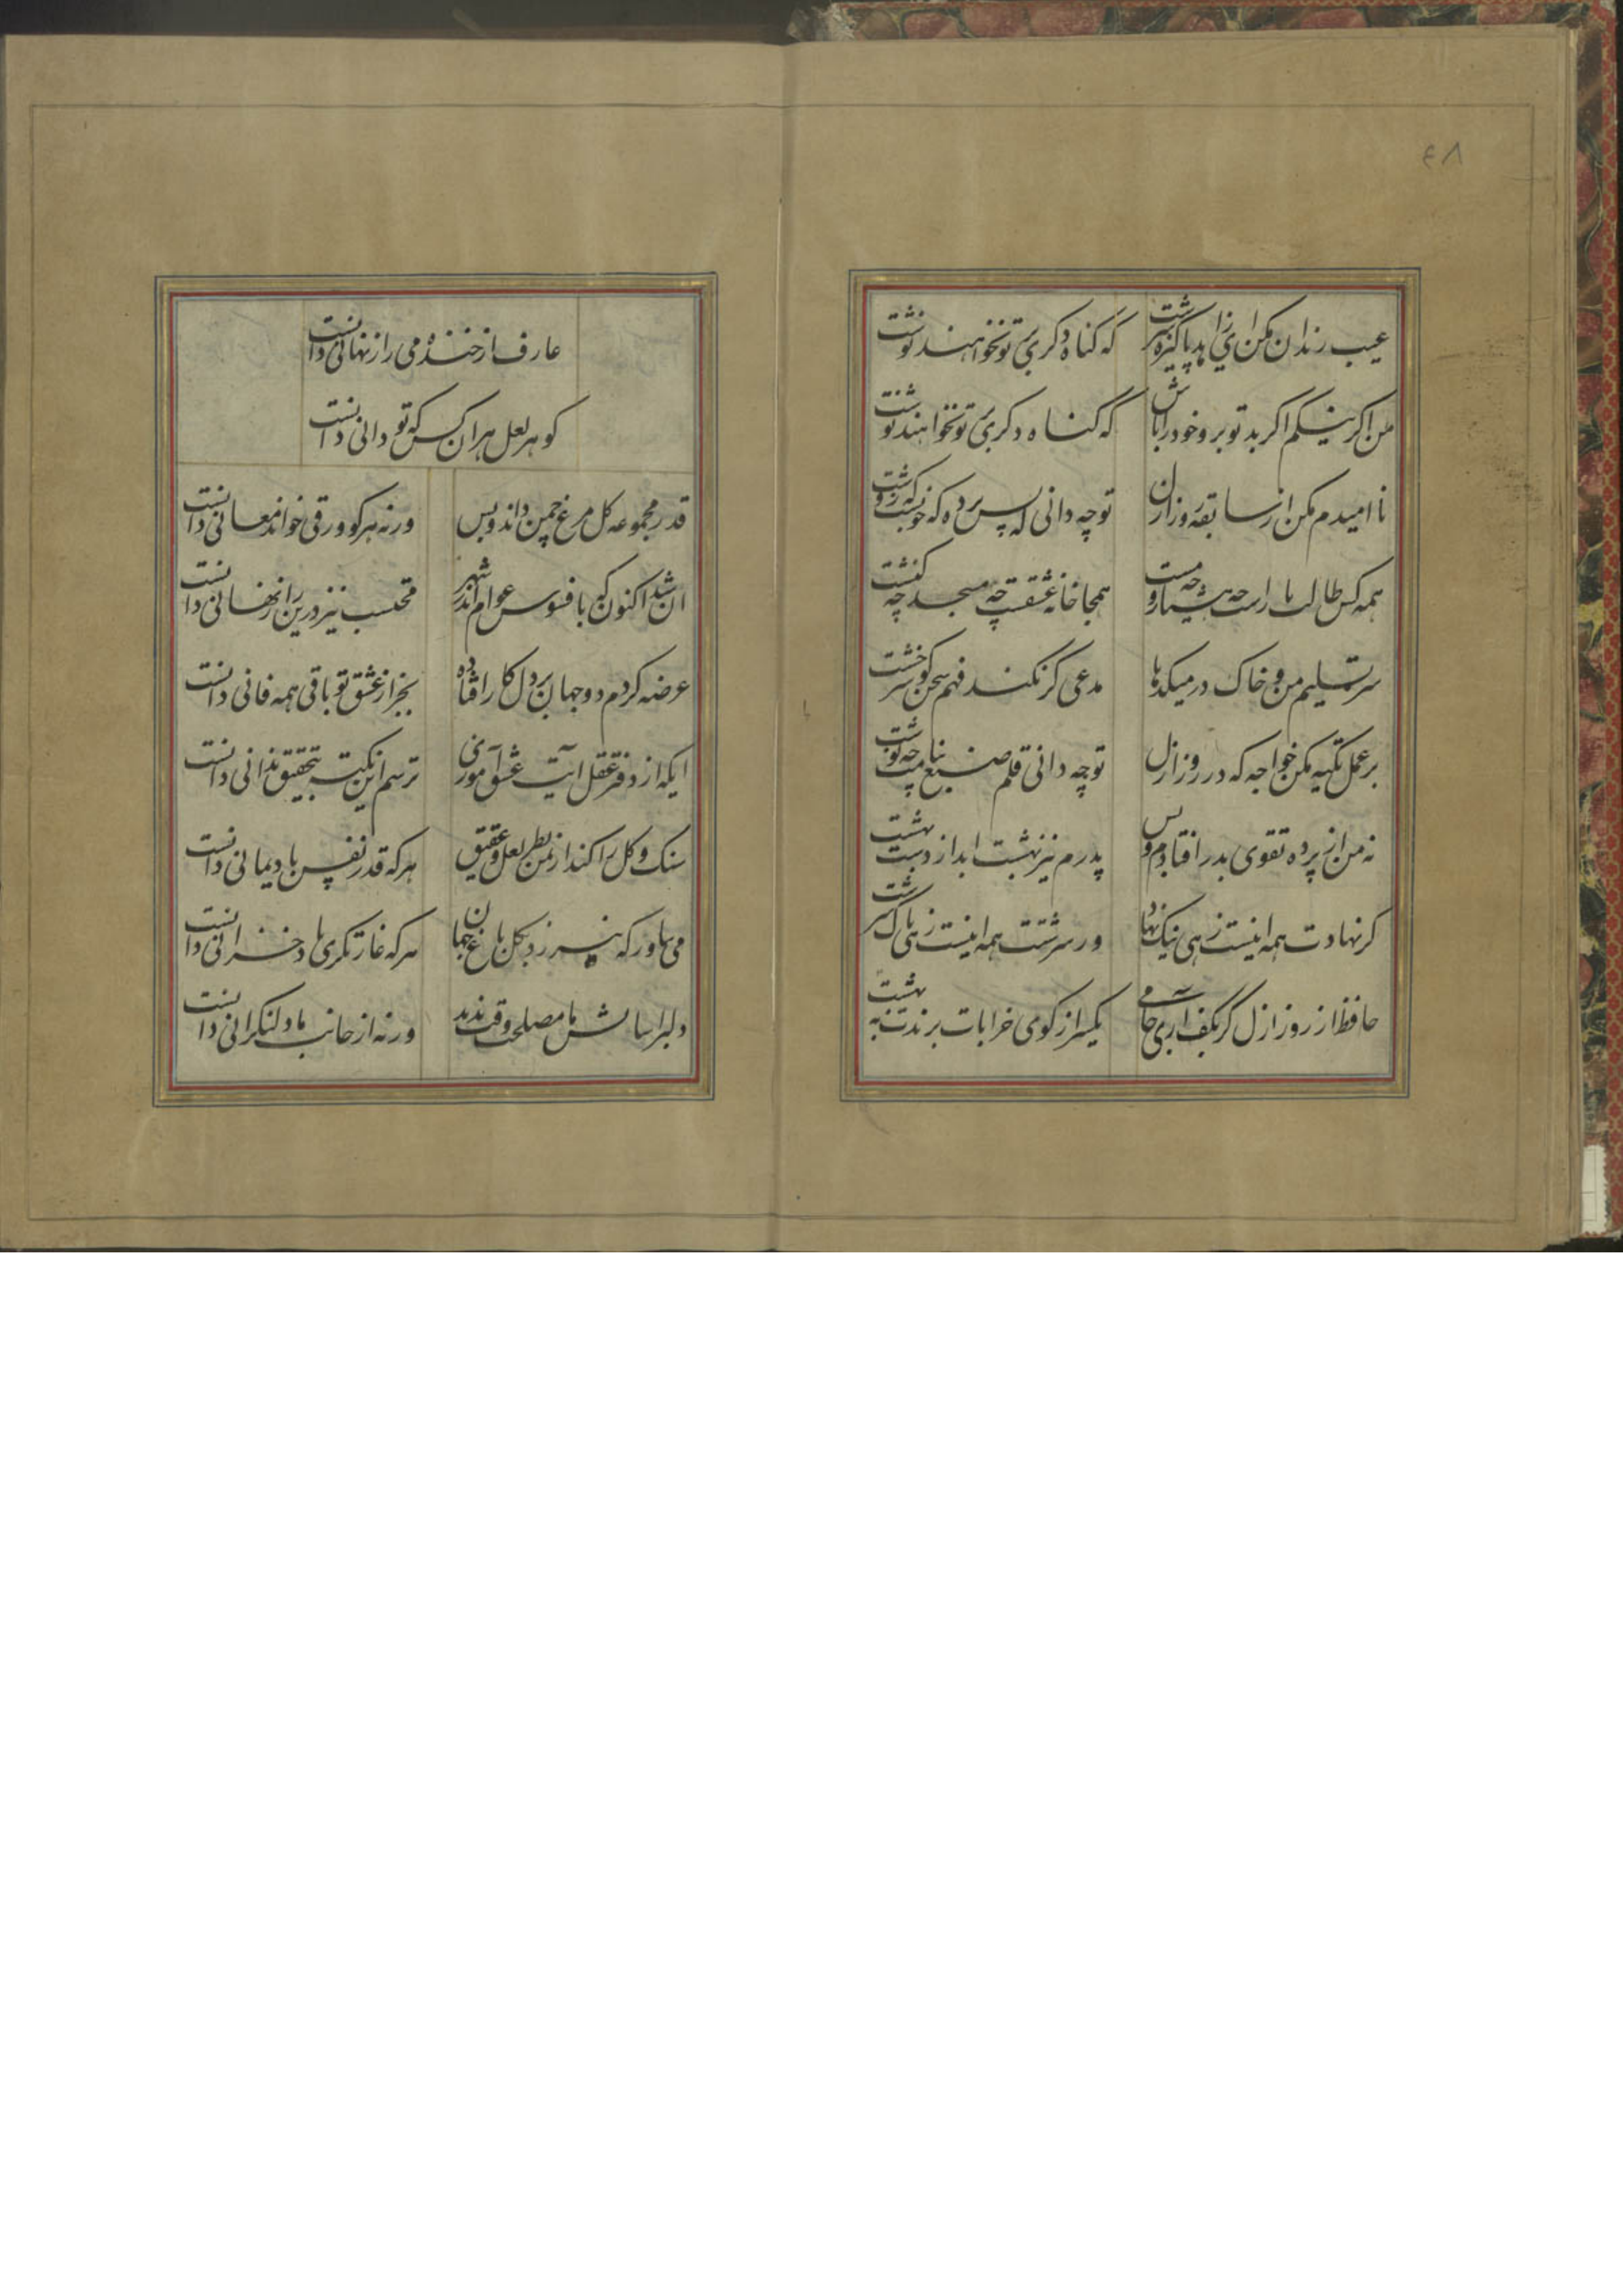 ۴۸
عیب رندان مکن ای زاهد پاکیزه سرشت
که کناه دکری بر تو نخواهند نوشت
من اکر نیکم اکر بد تو برو خود را باش
که کناه دکری بر تو نخواهند نوشت
نا امیدم مکن از سابقه روز ازل
تو چه دانی که پس پرده که خوبست و که زشت
همه کس طالب یارست چه هشیار و چه مست
همه جا خانه عشقست چه مسجد چه کنشت
سر تسلیم من و خاک در میکدها
مدعی کر نکند فهم سخن کو سر و خشت
بر عمل تکیه مکن خواجه که در روز ازل
تو چه دانی قلم صنع بنامت چه نوشت
نه من از پرده تقوی بدر افتادم و بس
پدرم نیز بهشت ابد از دست بهشت
کر نهادت همه اینست زهی نیک نهاد
ور سرشتت همه اینست زهی پاک سرشت
حافظا روز ازل کر بکف آری جامی
یکسر از کوی خرابات برندت به بهشت
عارف از خنده می راز نهانی دانست
کوهر لعل هر ان کس که تو دانی دانست
قدر مجموعه کل مرغ چمن داند و بس
ورنه هر کو ورقی خواند معانی دانست
ان شد اکنون که بافسوس عوام اندر شهر
محتسب نیز درین راز نهانی دانست
عرضه کردم دو جهان بر دل کار افتاده
بجز از عشق تو باقی همه فانی دانست
ایکه از دفتر عقل آیت عشق آموزی
ترسم این نکته بتحقیق ندانی دانست
سنک و کل را کند از یمن نظر لعل و عقیق
هر که قدر نفس باد یمانی دانست
می بیاور که ننازد بکل باغ جهان
هر که غارتکری باد خزانی دانست
دلبر اسایش ما مصلحت وقت ندید
ورنه از جانب ما دلنکرانی دانست